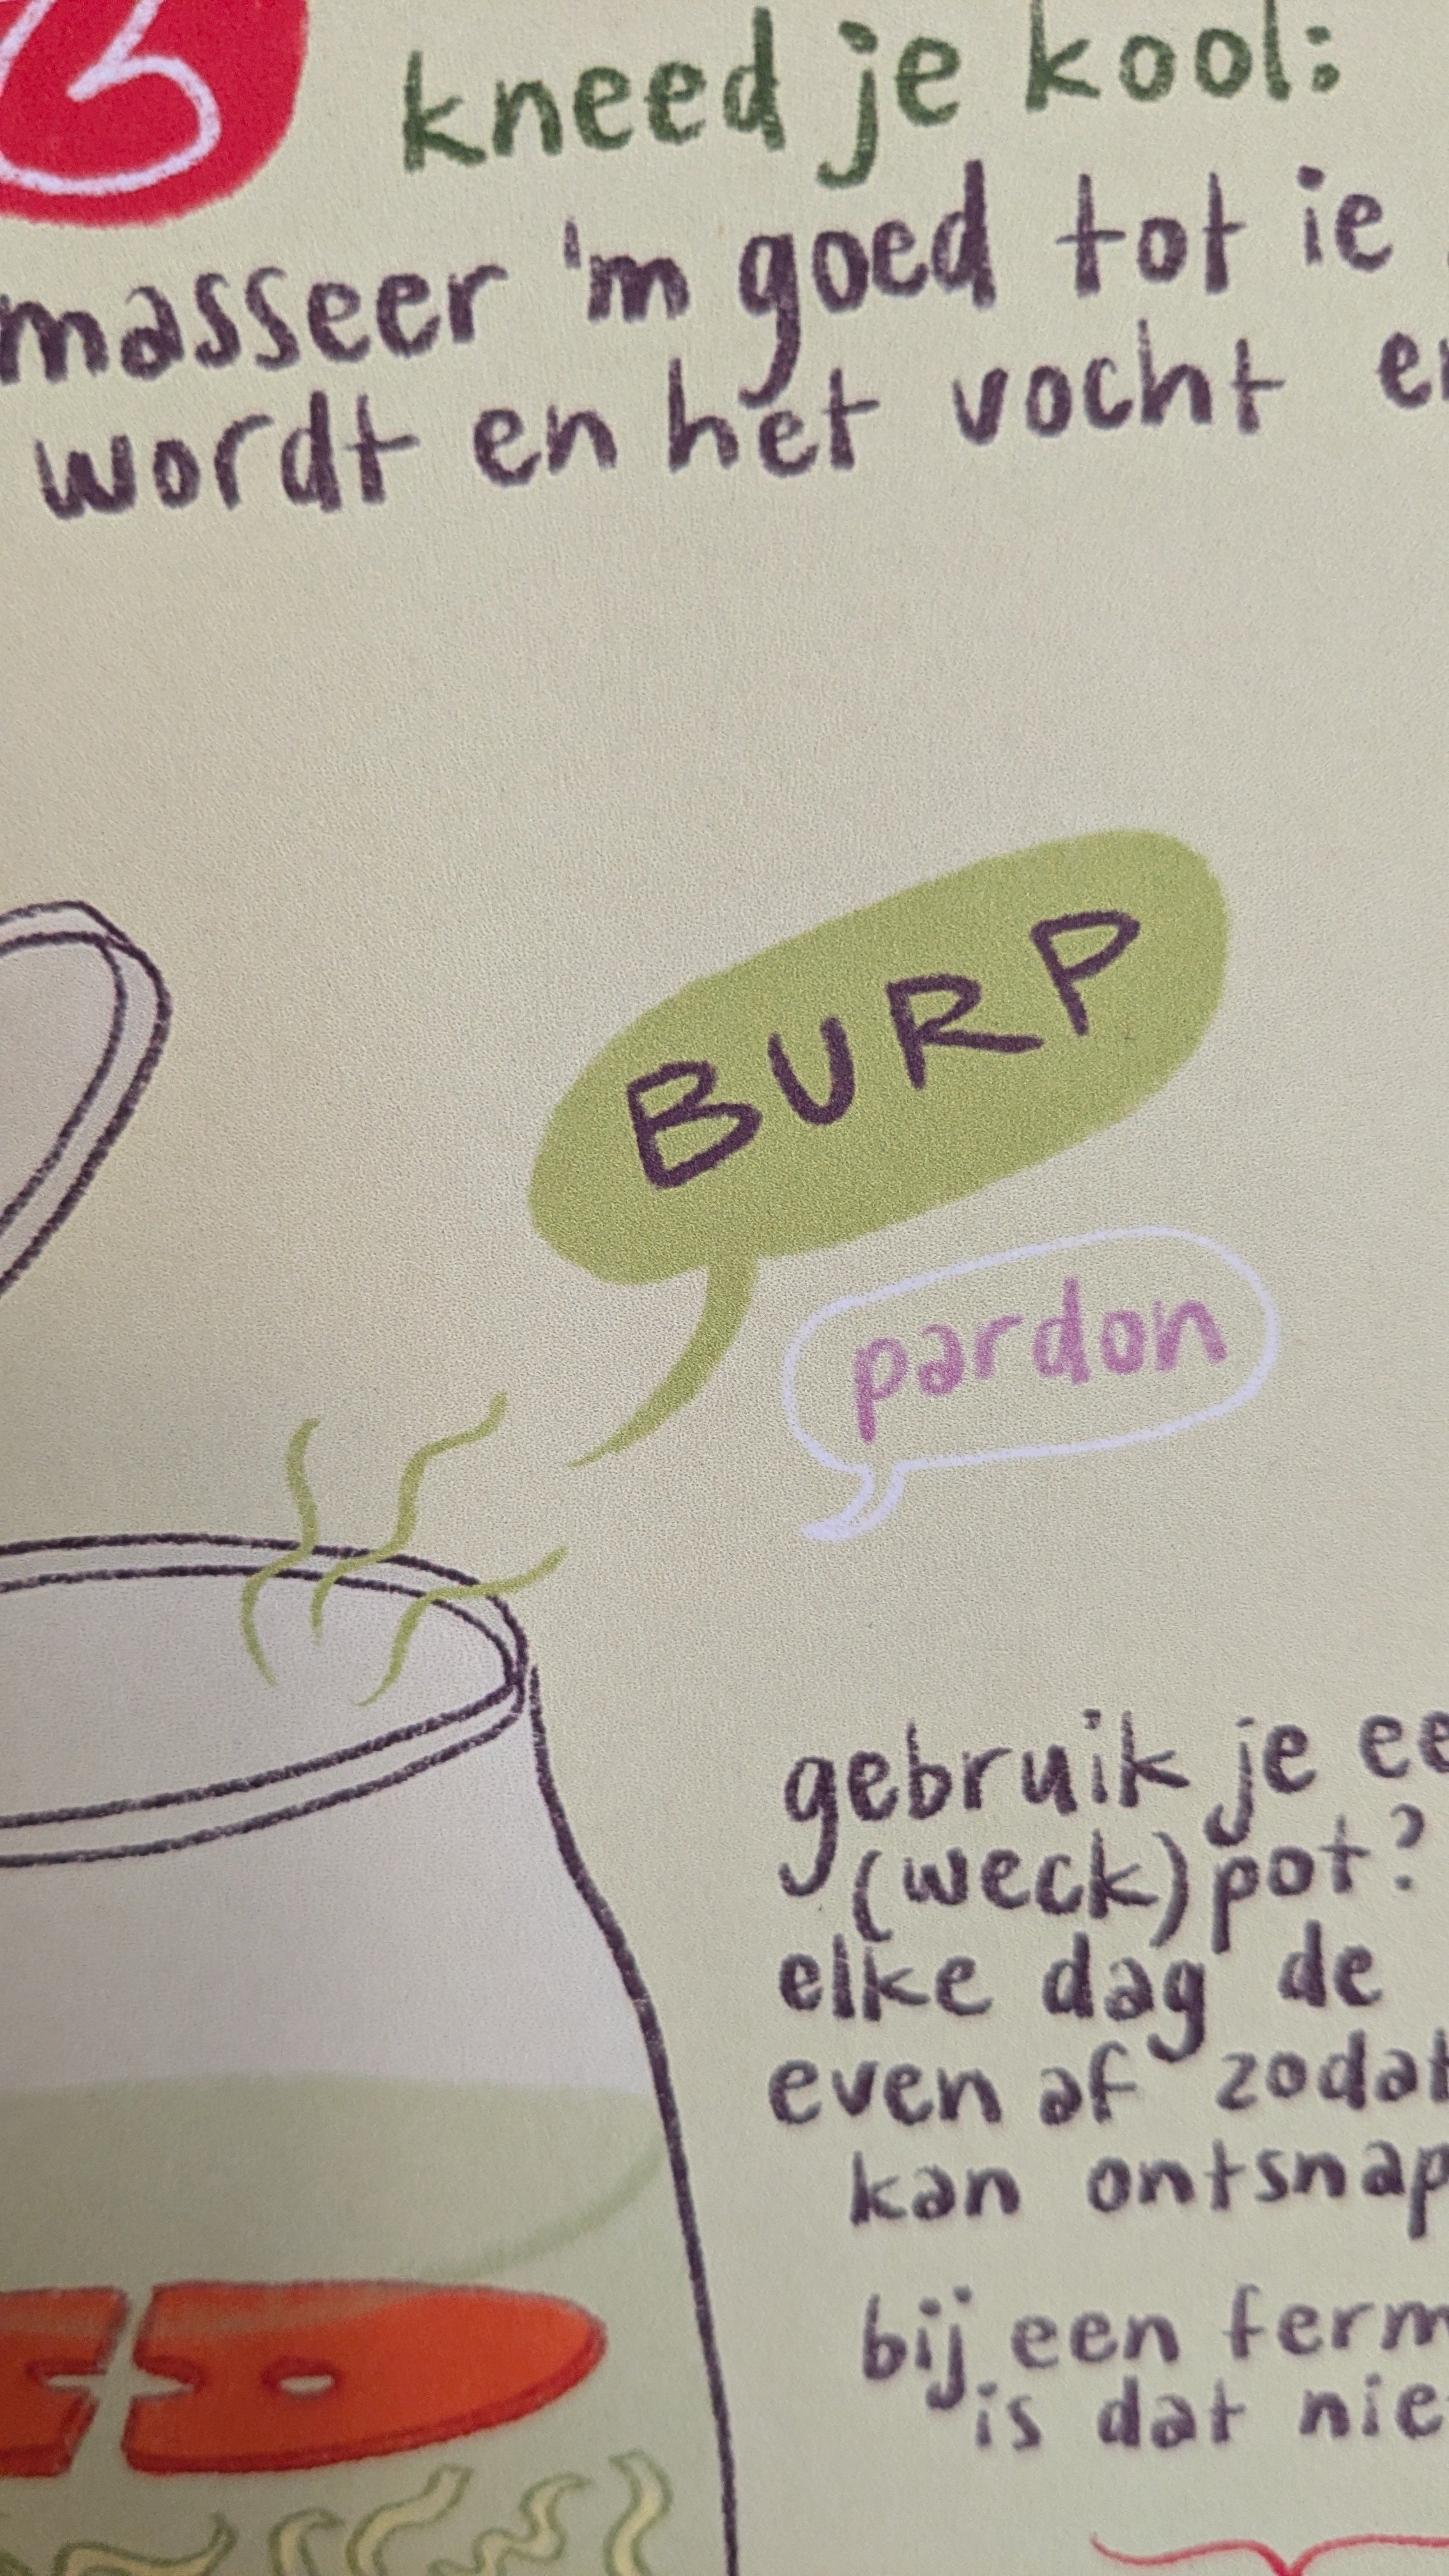 kneed je kool:
masseer 'm goed tot ie
wordt en het vocht
BURP
pardon
gebruik je
(weck)pot?
elke dag de
even af zodat
kan
bij een
is dat